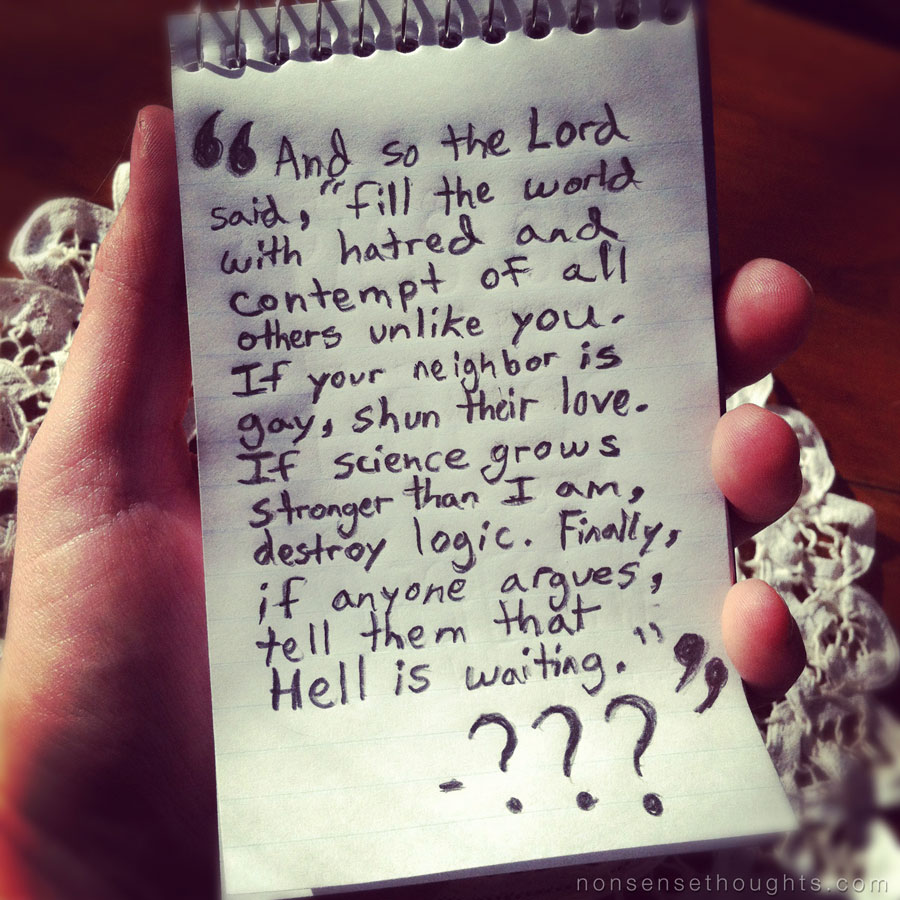 “And so the Lord
said, “fill the world
with hatred and
contempt of all
others unlike you.
If your neighbor is
gay, shun their love.
If science grows
stronger than I am,
destroy logic. Finally,
if anyone argues,
tell them that
Hell is waiting.””
-???
nonsensethoughts.com